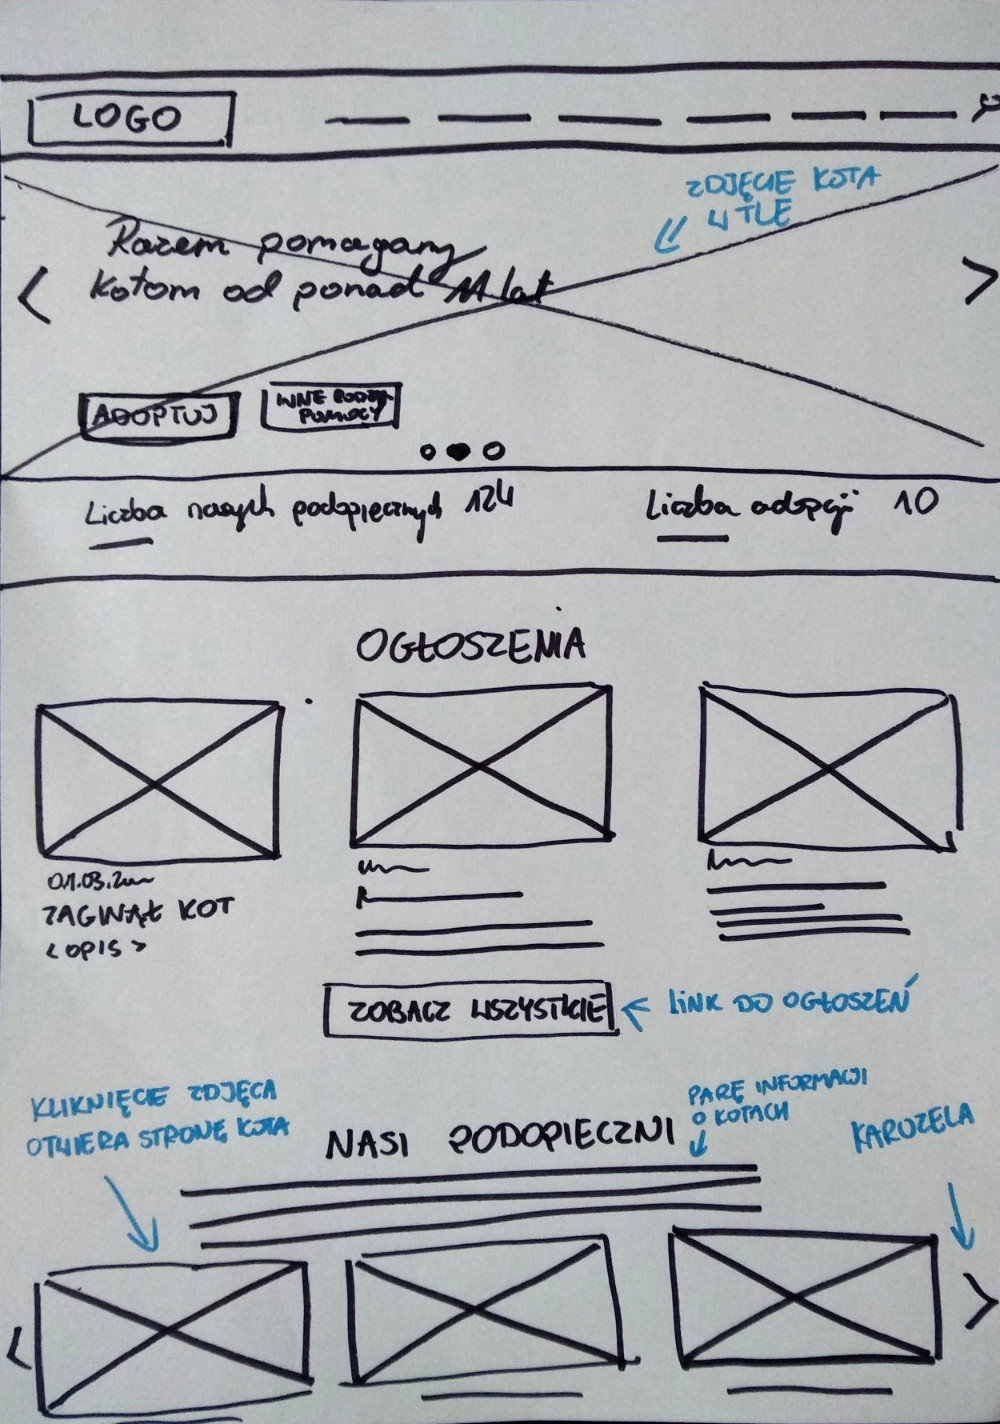 LOGO
ZDJĘCIE KOTA
W TLE
Razem pomagamy
kotom od ponad 11 lat
ADOPTUJ
INNE RODZAJE
POMOCY
Liczba naszych podopiecznych 124
Liczba adopcji 10
OGŁOSZENIA
01.03.
ZAGINĄŁ KOT
<OPIS>
ZOBACZ WSZYSTKIE
LINK DO OGŁOSZEŃ
KLIKNIĘCIE ZDJĘCA
OTWIERA STRONĘ KOTA
PARĘ INFORMACJI
O KOTACH
KARUZELA
NASI PODOPIECZNI